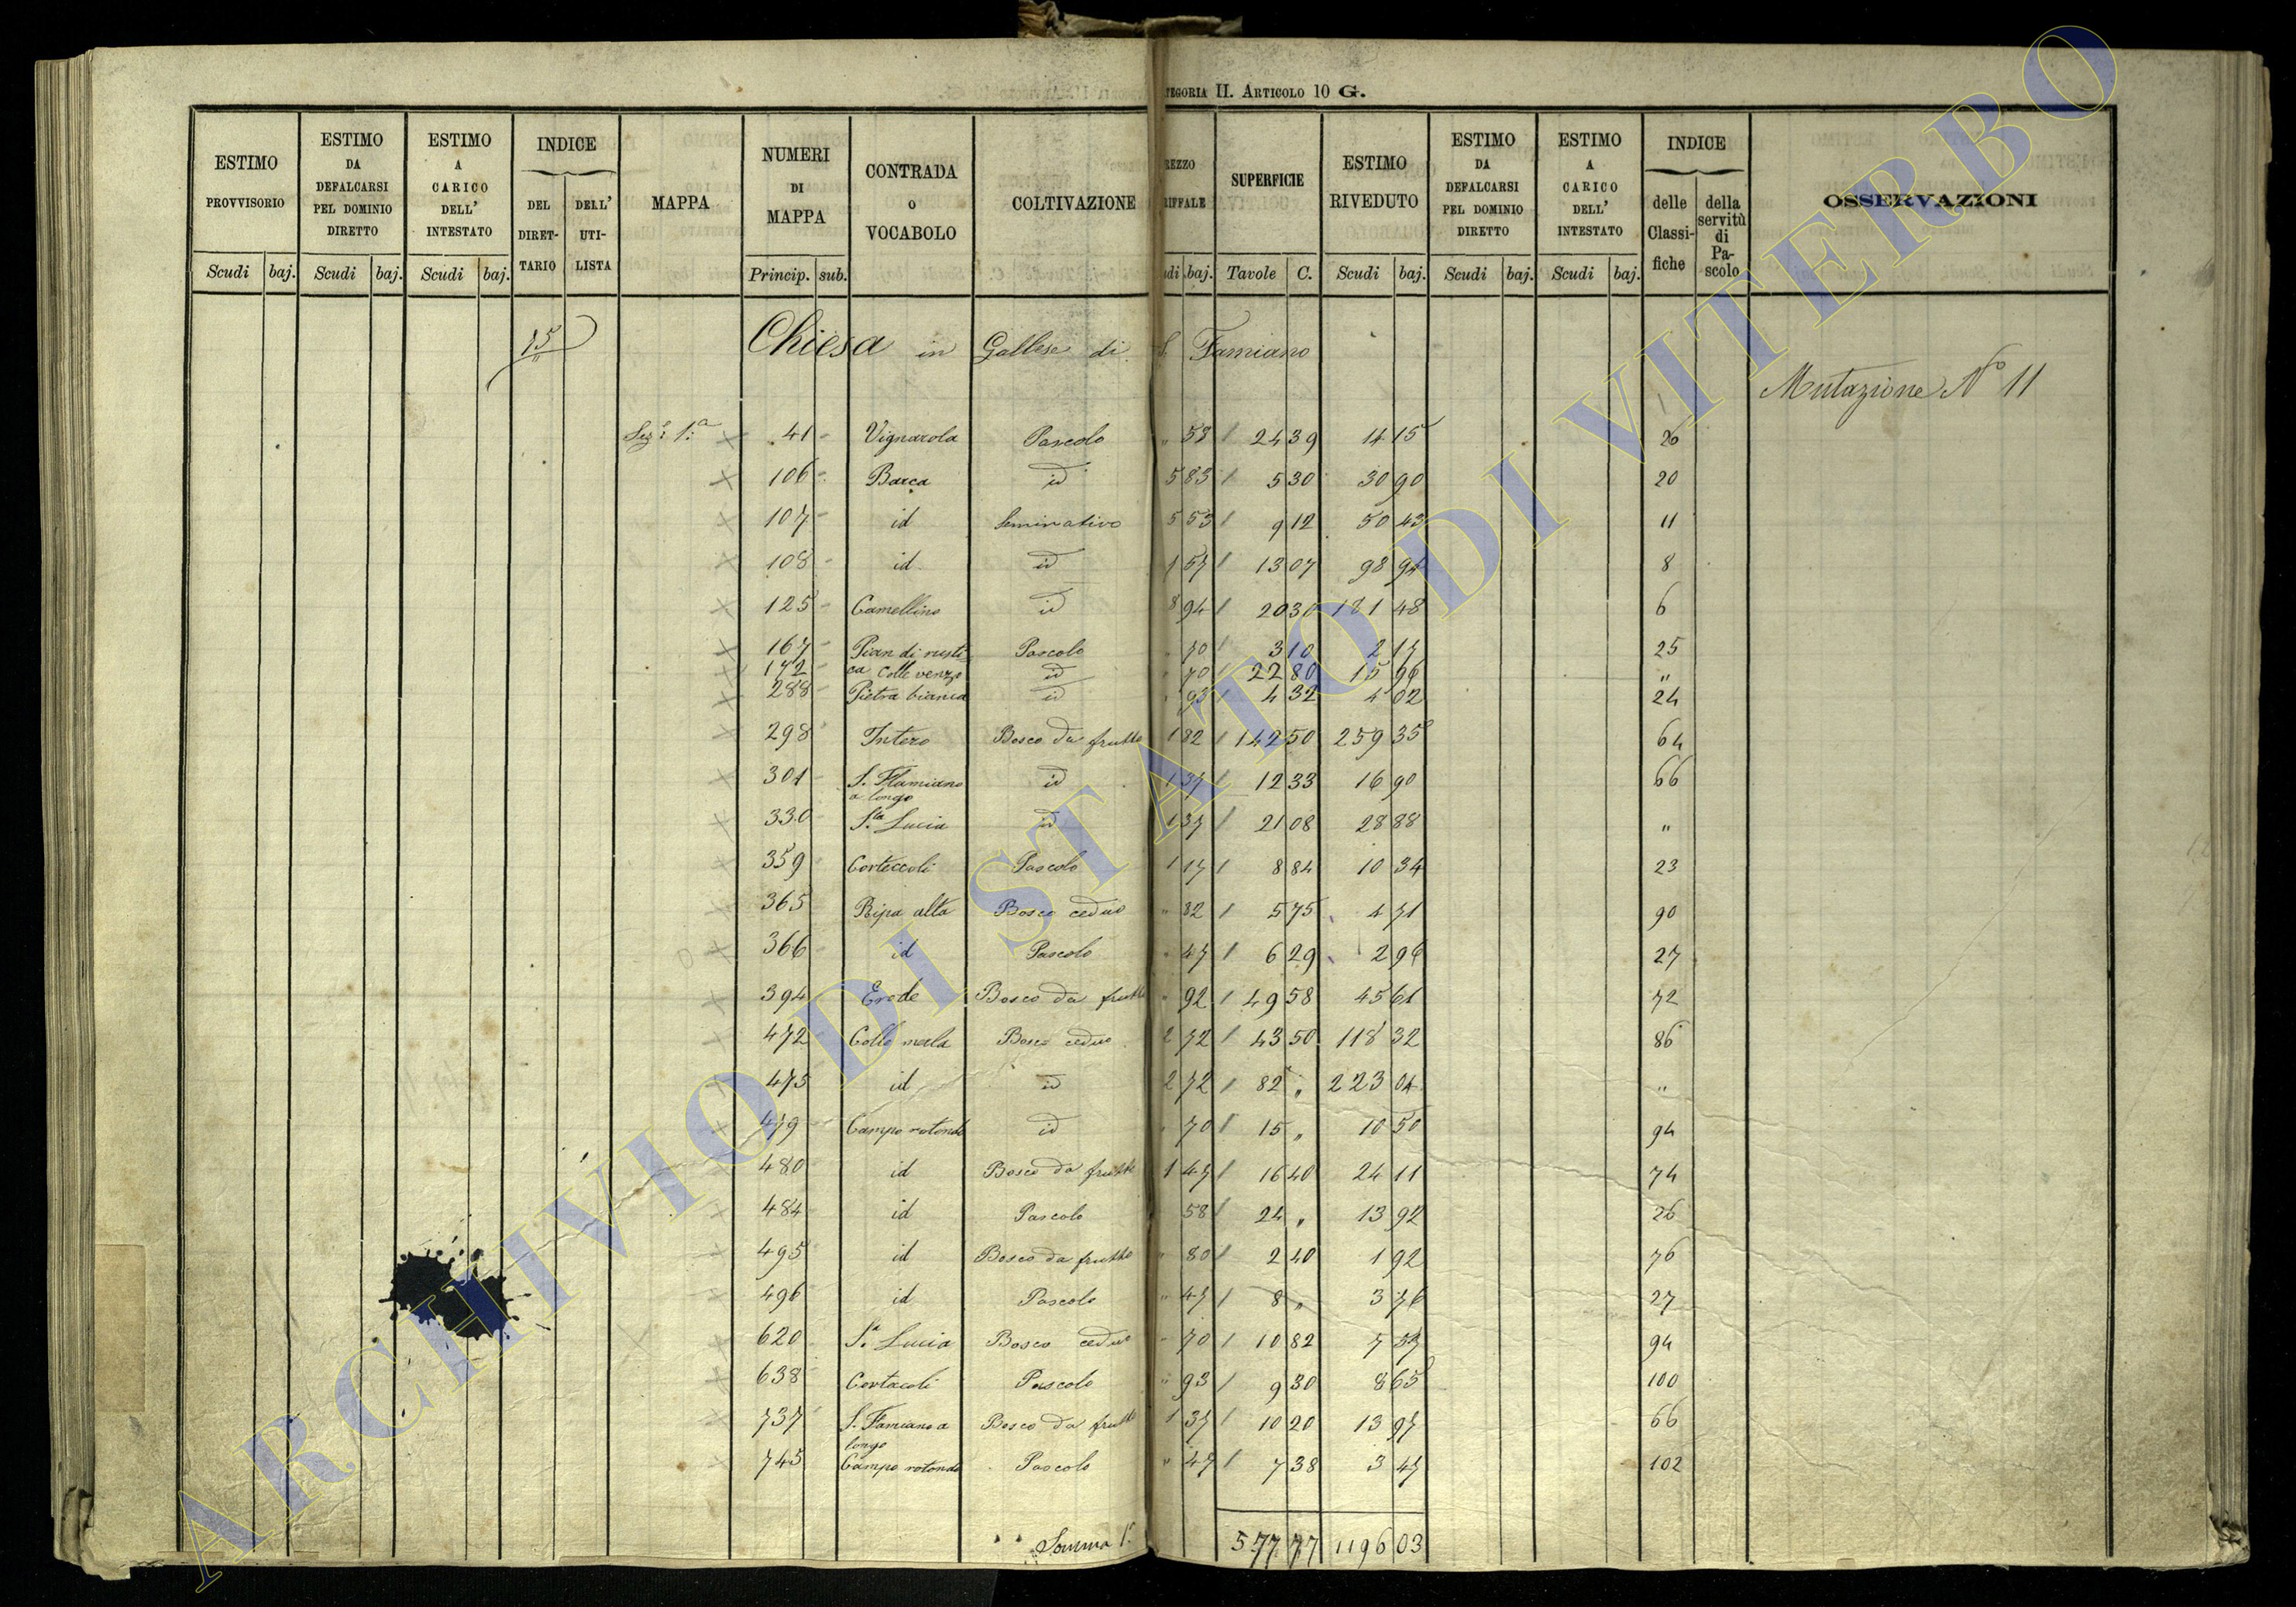 TEGORIA II. ARTICOLO 10 G.
ESTIMO PROVVISORIO
ESTIMO DA DEFALCARSI PEL DOMINIO DIRETTO
ESTIMO A CARICO DELL' INTESTATO
INDICE
DEL DIRET-TARIO
DELL' UTI-LISTA
MAPPA
NUMERI DI MAPPA
CONTRADA O VOCABOLO
COLTIVAZIONE
REZZO RIFFALE
SUPERFICIE
ESTIMO RIVEDUTO
ESTIMO DA DEFALCARSI PEL DOMINIO DIRETTO
ESTIMO A CARICO DELL' INTESTATO
INDICE
delle Classi-fiche
della servitù di Pa-scolo
OSSERVAZIONI
Scudi baj. Scudi baj. Scudi baj. Princip. sub. udi baj. Tavole C. Scudi baj. Scudi baj. Scudi baj.
15 Chiesa in Gallese di S. Famiano
Mutazione N° 11
Sez.e 1.a 41 Vignarola Pascolo " 58 24 39 14 15 26
106 Barca id 5 83 5 30 30 90 20
107 id Seminativo 5 53 9 12 50 43 11
108 id id 7 57 13 07 98 94 8
125 Camellino id 8 94 20 30 181 48 6
167 Pian di rusti= Pascolo " 70 3 10 2 17 25
172 ca Colle venzo id " 70 22 80 15 96 "
288 Pietra bianca id " 93 4 32 4 02 24
298 Intero Bosco da frutto 1 82 142 50 259 35 64
301 S. Flamiano a longo id 1 37 12 33 16 90 66
330 S.ta Lucia id 1 37 21 08 28 88 "
359 Corteccoli Pascolo 1 17 8 84 10 34 23
365 Ripa alta Bosco ceduo " 82 5 75 4 71 90
366 id Pascolo " 47 6 29 2 96 27
394 Erode Bosco da frutto " 92 49 58 45 61 72
472 Colle merla Bosco ceduo 2 72 43 50 118 32 86
475 id id 2 72 82 " 223 04 "
479 Campo rotondo id " 70 15 " 10 50 94
480 id Bosco da frutto 1 47 16 40 24 11 74
484 id Pascolo 58 24 " 13 92 26
495 id Bosco da frutto " 80 2 40 1 92 76
496 id Pascolo " 47 8 " 3 76 27
620 S.a Lucia Bosco ceduo " 70 10 82 7 57 94
638 Cortacoli Pascolo " 93 9 30 8 65 100
737 S. Famiano a longo Bosco da frutto 1 37 10 20 13 97 66
745 Campo rotondo Pascolo " 47 7 38 3 47 102
Somma 1.a 577 77 1196 03
ARCHIVIO DI STATO DI VITERBO